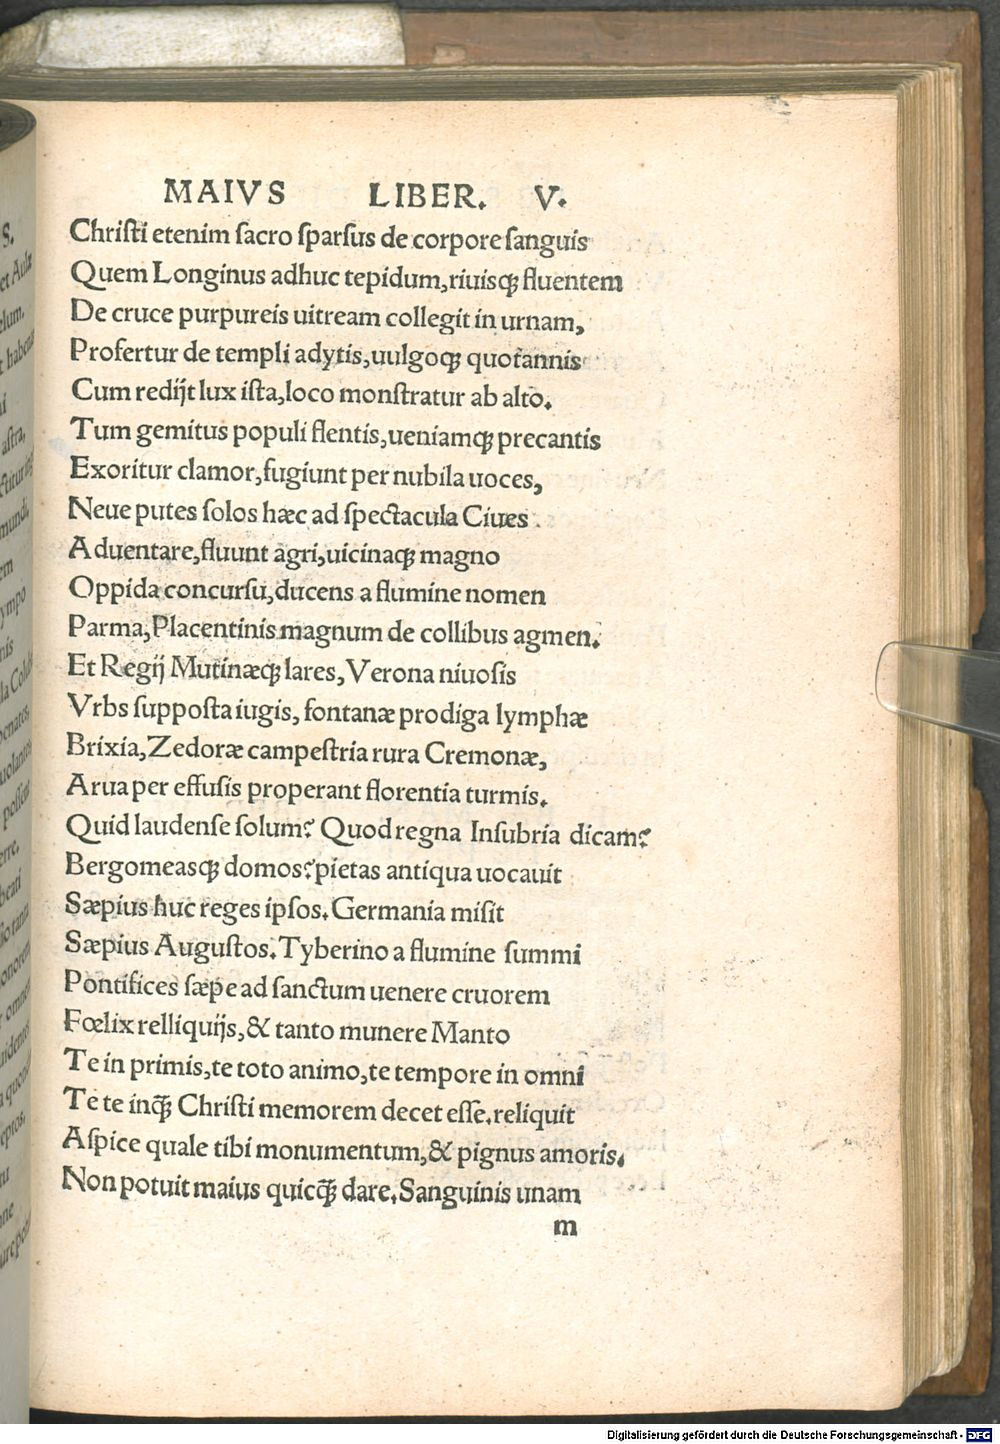 MAIVS LIBER. V.
Chriſti etenim ſacro ſparſus de corpore ſanguis
Quem Longinus adhuc tepidum,riuisq̃ fluentem
De cruce purpureis uitream collegit in urnam,
Profertur de templi adytis,uulgoq̃ quotannis
Cum redijt lux iſta,loco monſtratur ab alto.
Tum gemitus populi flentis,ueniamq̃ precantis
Exoritur clamor,fugiunt per nubila uoces,
Neue putes ſolos hæc ad ſpectacula Ciues
Aduentare,fluunt agri,uicinaq̃ magno
Oppida concurſu,ducens a flumine nomen
Parma,Placentinis magnum de collibus agmen.
Et Regij Mutinæq̃ lares,Verona niuoſis
Vrbs ſuppoſta iugis, fontanæ prodiga lymphæ
Brixia,Zedoræ campeſtria rura Cremonæ,
Arua per effuſis properant florentia turmis.
Quid laudenſe ſolum? Quod regna Inſubria dicam?
Bergomeasq̃ domos?pietas antiqua uocauit
Sæpius huc reges ipſos.Germania miſit
Sæpius Auguſtos.Tyberino a flumine ſummi
Pontifices ſæpe ad ſanctum uenere cruorem
Fœlix relliquijs,& tanto munere Manto
Te in primis,te toto animo,te tempore in omni
Te te inq̃ Chriſti memorem decet eſſe.reliquit
Aſpice quale tibi monumentum,& pignus amoris.
Non potuit maius quicq̃ dare.Sanguinis unam
m
Digitalisierung gefördert durch die Deutsche Forschungsgemeinschaft - DFG